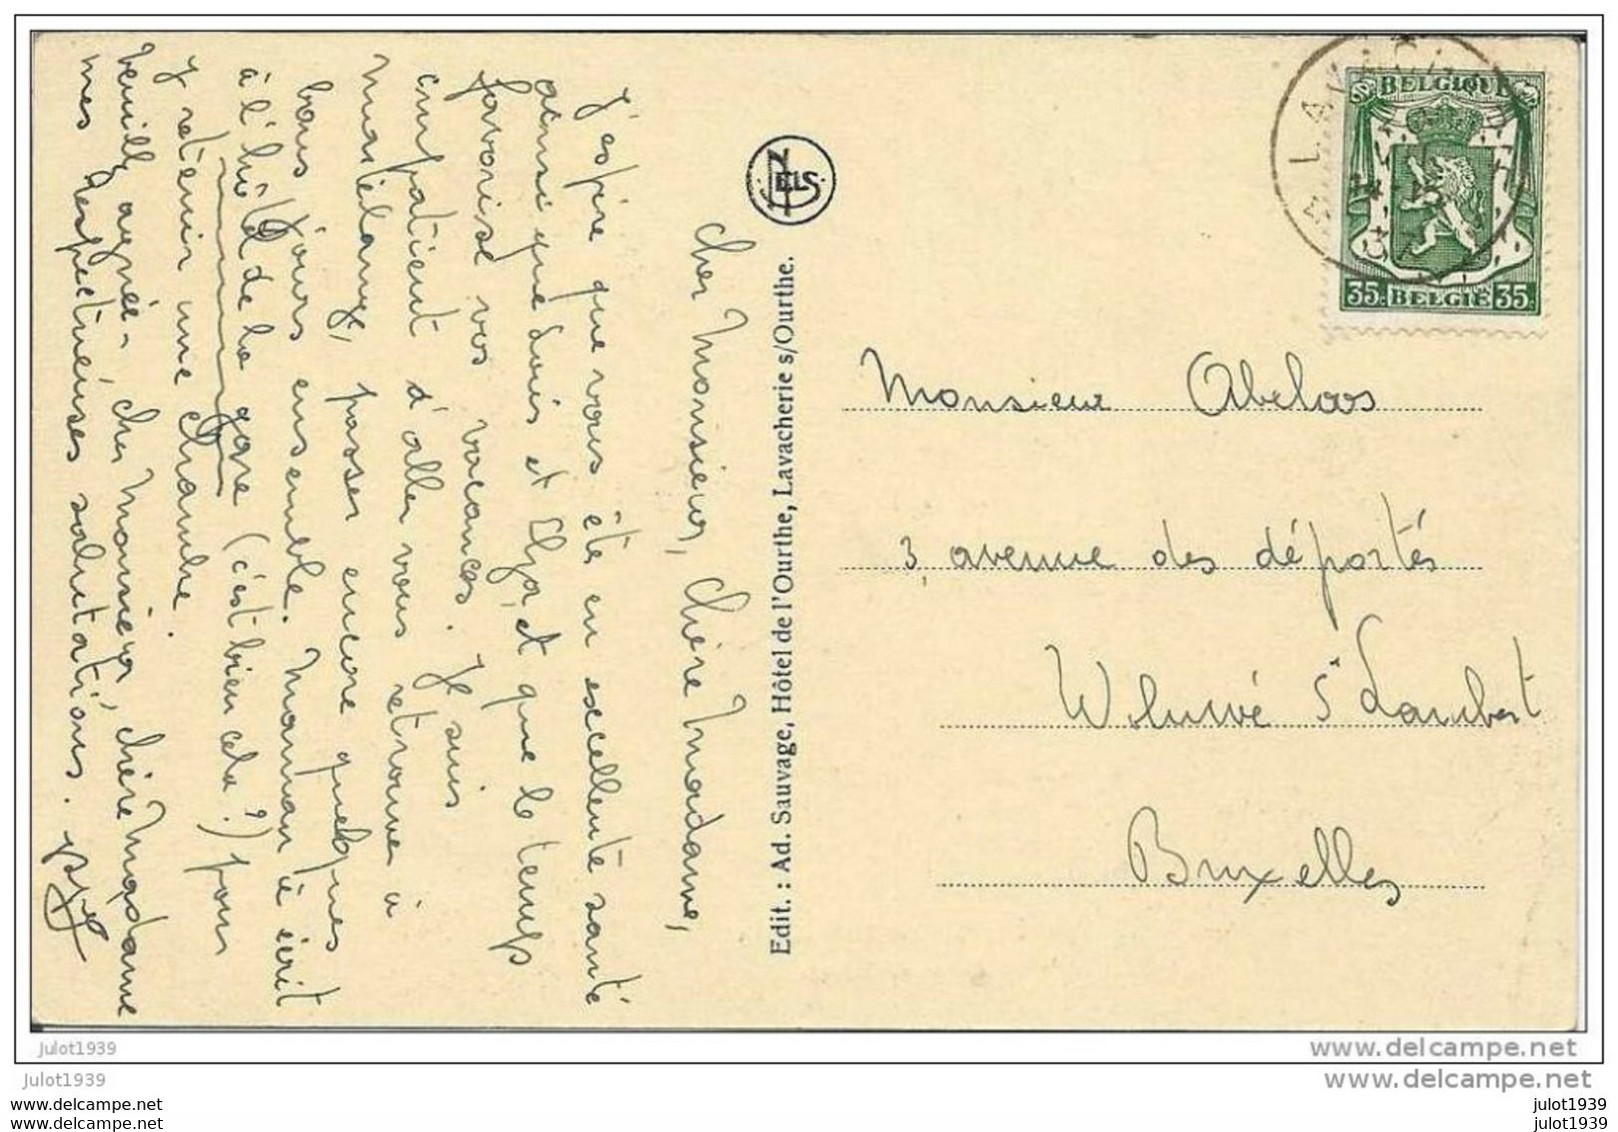 Cher Monsieur, Chère Madame,
J'espère que vous êtes en excellente santé
ainsi que Louis et Elza, et que le temps
favorise vos vacances. Je suis
impatient d'aller vous retrouver à
passer encore quelques
bons jours ensemble. Maman a écrit
à l'hôtel de la gare (c'est bien cela?) pour
y retenir une chambre.
Veuillez agréer, cher Monsieur, chère Madame
mes respectueuses salutations.
NELS
Edit. : Ad. Sauvage, Hôtel de l'Ourthe, Lavacherie s/Ourthe.
BELGIQUE
35 c BELGIË 35 c
Monsieur Abeloos
3, avenue des déportés
Woluwé St Lambert
Bruxelles
julot1939
julot1939
www.delcampe.net
www.delcampe.net
www.delcampe.net
www.delcampe.net
julot1939
julot1939